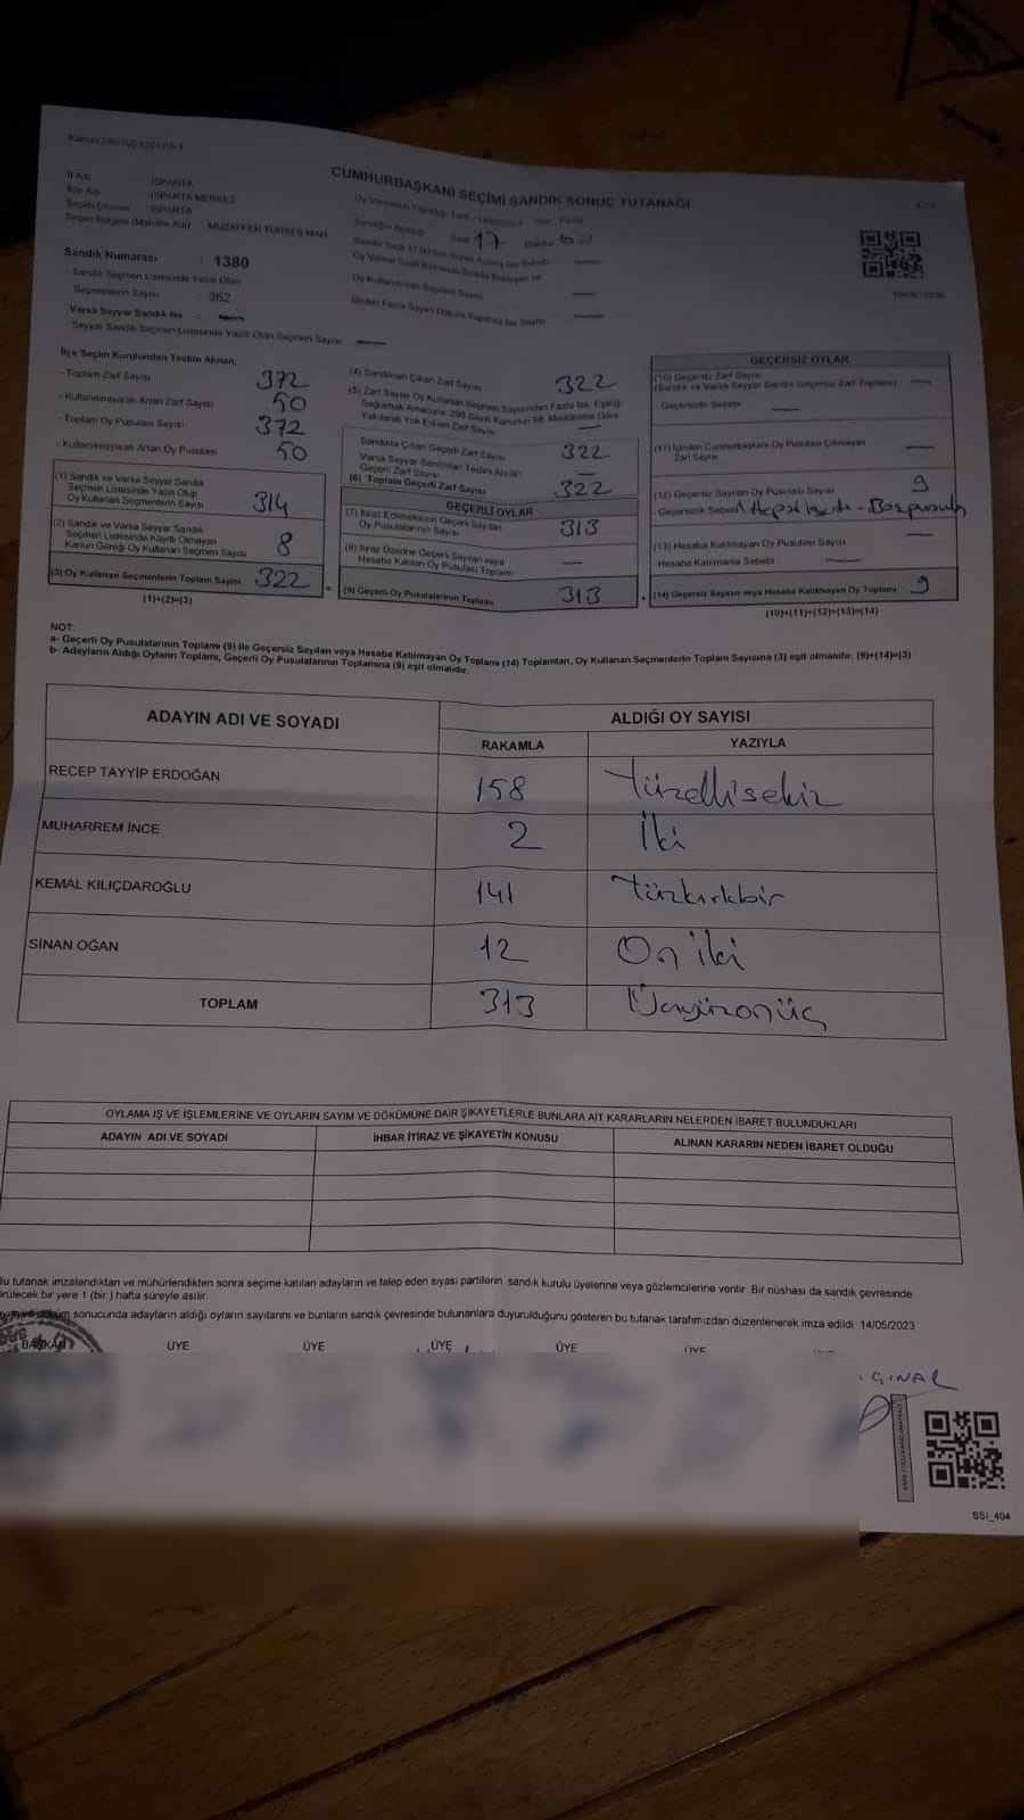 CUMHURBAŞKANI SEÇİMİ SANDIK SONUÇ TUTANAĞI
İl Adı : ISPARTA
İlçe Adı : ISPARTA MERKEZ
Seçim Çevresi : ISPARTA
Seçim Bölgesi (Mahalle Adı) : MUZAFFER TÜRKEŞ MAH.
17
Sandık Numarası : 1380
Sandık Seçmen Listesinde Yazılı Olan
Seçmenlerin Sayısı : 362
Varsa Seyyar Sandık No
Seyyar Sandık Seçmen Listesinde Yazılı Olan Seçmen Sayısı
İlçe Seçim Kurulundan Teslim Alınan;
- Toplam Zarf Sayısı 372
- Kullanılmayarak Artan Zarf Sayısı 50
- Toplam Oy Pusulası Sayısı 372
- Kullanılmayarak Artan Oy Pusulası 50
(1) Sandık ve Varsa Seyyar Sandık
Seçmen Listesinde Yazılı Olup
Oy Kullanan Seçmenlerin Sayısı 314
(2) Sandık ve Varsa Seyyar Sandık
Seçmen Listesinde Kayıtlı Olmayan
Kanun Gereği Oy Kullanan Seçmen Sayısı 8
(3) Oy Kullanan Seçmenlerin Toplam Sayısı 322
(1)+(2)=(3)
(4) Sandıktan Çıkan Zarf Sayısı 322
Sandıkta Çıkan Geçerli Zarf Sayısı 322
Varsa Seyyar Sandıktan Teslim Alınan
Geçerli Zarf Sayısı
(6) Toplam Geçerli Zarf Sayısı 322
GEÇERLİ OYLAR
(7) İtiraz Edilmeksizin Geçerli Sayılan
Oy Pusulalarının Sayısı 313
(8) İtiraz Üzerine Geçerli Sayılan veya
Hesaba Katılan Oy Pusulası Toplamı
(9) Geçerli Oy Pusulalarının Toplamı 313
GEÇERSİZ OYLAR
(10) Geçersiz Zarf Sayısı
(Sandık ve Varsa Seyyar Sandık Geçersiz Zarf Toplamı)
Geçersizlik Sebebi
(11) İçinden Cumhurbaşkanı Oy Pusulası Çıkmayan
Zarf Sayısı
(12) Geçersiz Sayılan Oy Pusulası Sayısı 9
Geçersizlik Sebebi
(13) Hesaba Katılmayan Oy Pusulası Sayısı
Hesaba Katılmama Sebebi
(14) Geçersiz Sayılan veya Hesaba Katılmayan Oy Toplamı 9
(10)+(11)+(12)+(13)=(14)
NOT:
a- Geçerli Oy Pusulalarının Toplamı (9) ile Geçersiz Sayılan veya Hesaba Katılmayan Oy Toplamı (14) Toplamları, Oy Kullanan Seçmenlerin Toplam Sayısına (3) eşit olmalıdır. (9)+(14)=(3)
b- Adayların Aldığı Oyların Toplamı, Geçerli Oy Pusulalarının Toplamına (9) eşit olmalıdır.
ADAYIN ADI VE SOYADI ALDIĞI OY SAYISI
RAKAMLA YAZIYLA
RECEP TAYYİP ERDOĞAN 158 Yüzellisekiz
MUHARREM İNCE 2 İki
KEMAL KILIÇDAROĞLU 141 Yüzkırkbir
SİNAN OĞAN 12 On iki
TOPLAM 313 Üçyüzonüç
OYLAMA İŞ VE İŞLEMLERİNE VE OYLARIN SAYIM VE DÖKÜMÜNE DAİR ŞİKAYETLERLE BUNLARA AİT KARARLARIN NELERDEN İBARET BULUNDUKLARI
ADAYIN ADI VE SOYADI İHBAR İTİRAZ VE ŞİKAYETİN KONUSU ALINAN KARARIN NEDEN İBARET OLDUĞU
Bu tutanak imzalandıktan ve mühürlendikten sonra seçime katılan adayların ve talep eden siyasi partilerin sandık kurulu üyelerine veya gözlemcilerine verilir. Bir nüshası da sandık çevresinde
görülecek bir yere 1 (bir) hafta süreyle asılır.
döküm sonucunda adayların aldığı oyların sayılarını ve bunların sandık çevresinde bulunanlara duyurulduğunu gösteren bu tutanak tarafımızdan düzenlenerek imza edildi. 14/05/2023
BAŞKAN ÜYE ÜYE ÜYE ÜYE ÜYE
SSI_404